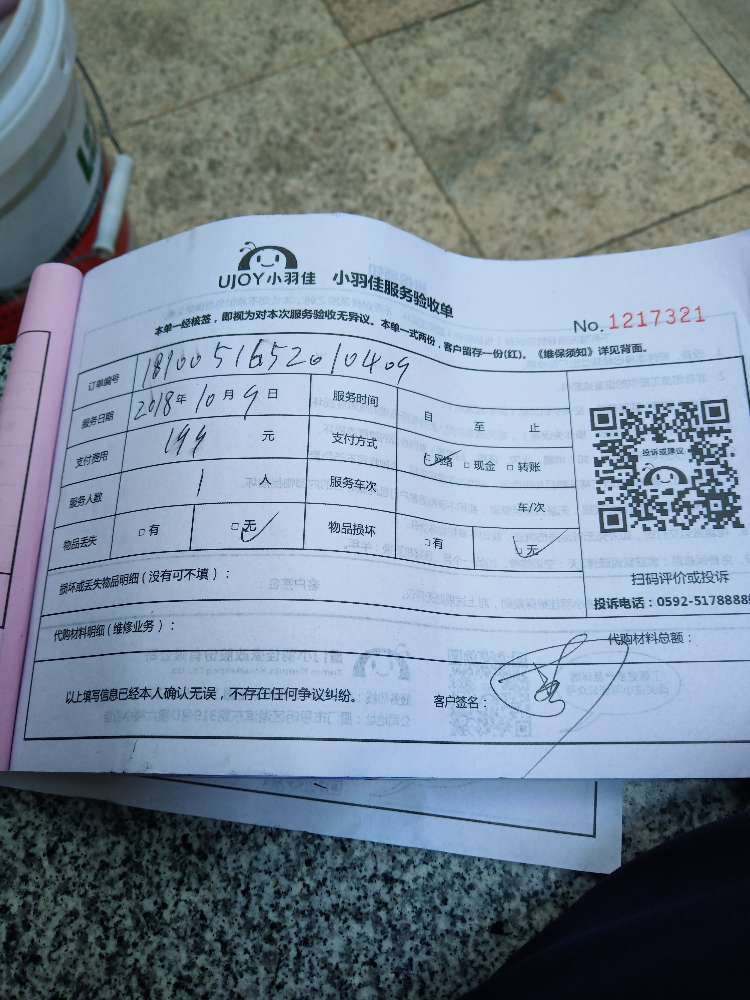 UJOY小羽佳 小羽佳服务验收单
本单一经核签，即视为对本次服务验收无异议。本单一式两份，客户留存一份(红)。《维保须知》详见背面。
No. 1217321
订单编号 1810051652010409
服务日期 2018年10月9日 服务时间 自 至 止
支付费用 199 元 支付方式 网络 现金 转账
服务人数 1 人 服务车次 车/次
物品丢失 有 无 物品损坏 有 无
投诉或建议
扫码评价或投诉
投诉电话：0592-5178888
损坏或丢失物品明细（没有可不填）：
代购材料明细（维修业务）： 代购材料总额：
以上填写信息已经本人确认无误，不存在任何争议纠纷。 客户签名：